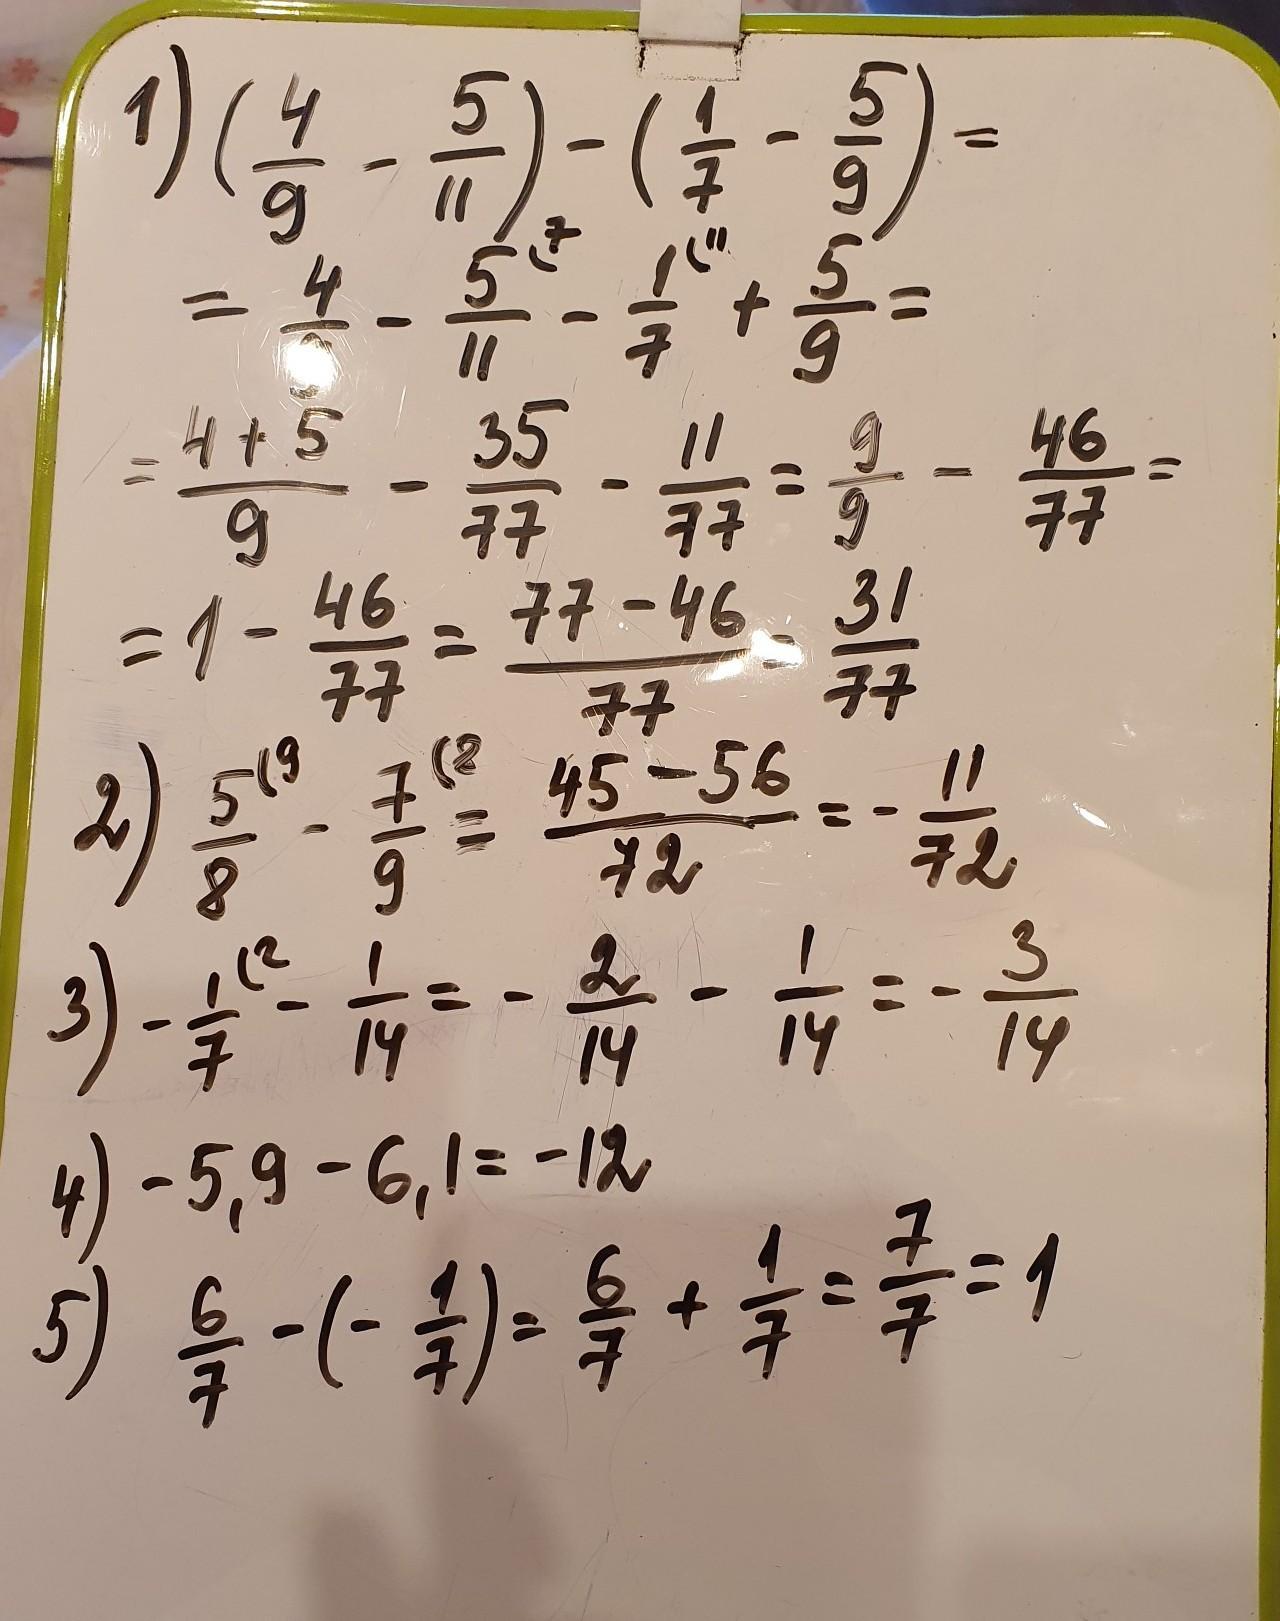 1) (4/9 - 5/11) - (1/7 - 5/9) =
= 4/9 - 5/11 (7 - 1/7 (11 + 5/9 =
= 4+5/9 - 35/77 - 11/77 = 9/9 - 46/77 =
= 1 - 46/77 = 77-46/77 = 31/77
2) 5/8 (9 - 7/9 (8 = 45-56/72 = - 11/72
3) - 1/7 (2 - 1/14 = - 2/14 - 1/14 = - 3/14
4) -5,9 - 6,1 = -12
5) 6/7 - (- 1/7) = 6/7 + 1/7 = 7/7 = 1